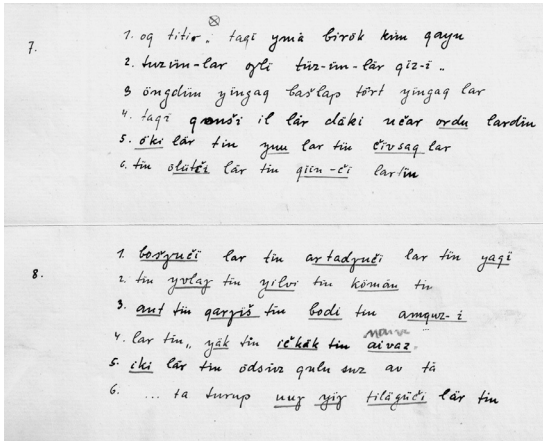 7.
1. og titir .. taqï ymä birök kim qayu
2. tuzün-lar oγli tüz-ün-lär qïz-ï ..
3 öngdün yïngaq bašlap tört yïngaq lar
4. taqï qonši il lär däki učar ordu lardïn
5. öki lär tin ynu lar tin čivsaq lar
6. tin ölütči lär tin qiin-či lartin
8.
1. bošγuči lar tin artadγuči lar tin yagi
2. tin yvlaq tin yilvi tin kömän tin
3. ant tin qarγiš tin bodi tin amquz-i
4. lar tin,, yäk tin ičkäk tin aivaz.
5. iki lär tin ödsüz qulu suz av ta
6. ... ta turup uuz yiγ tilägüči lär tin